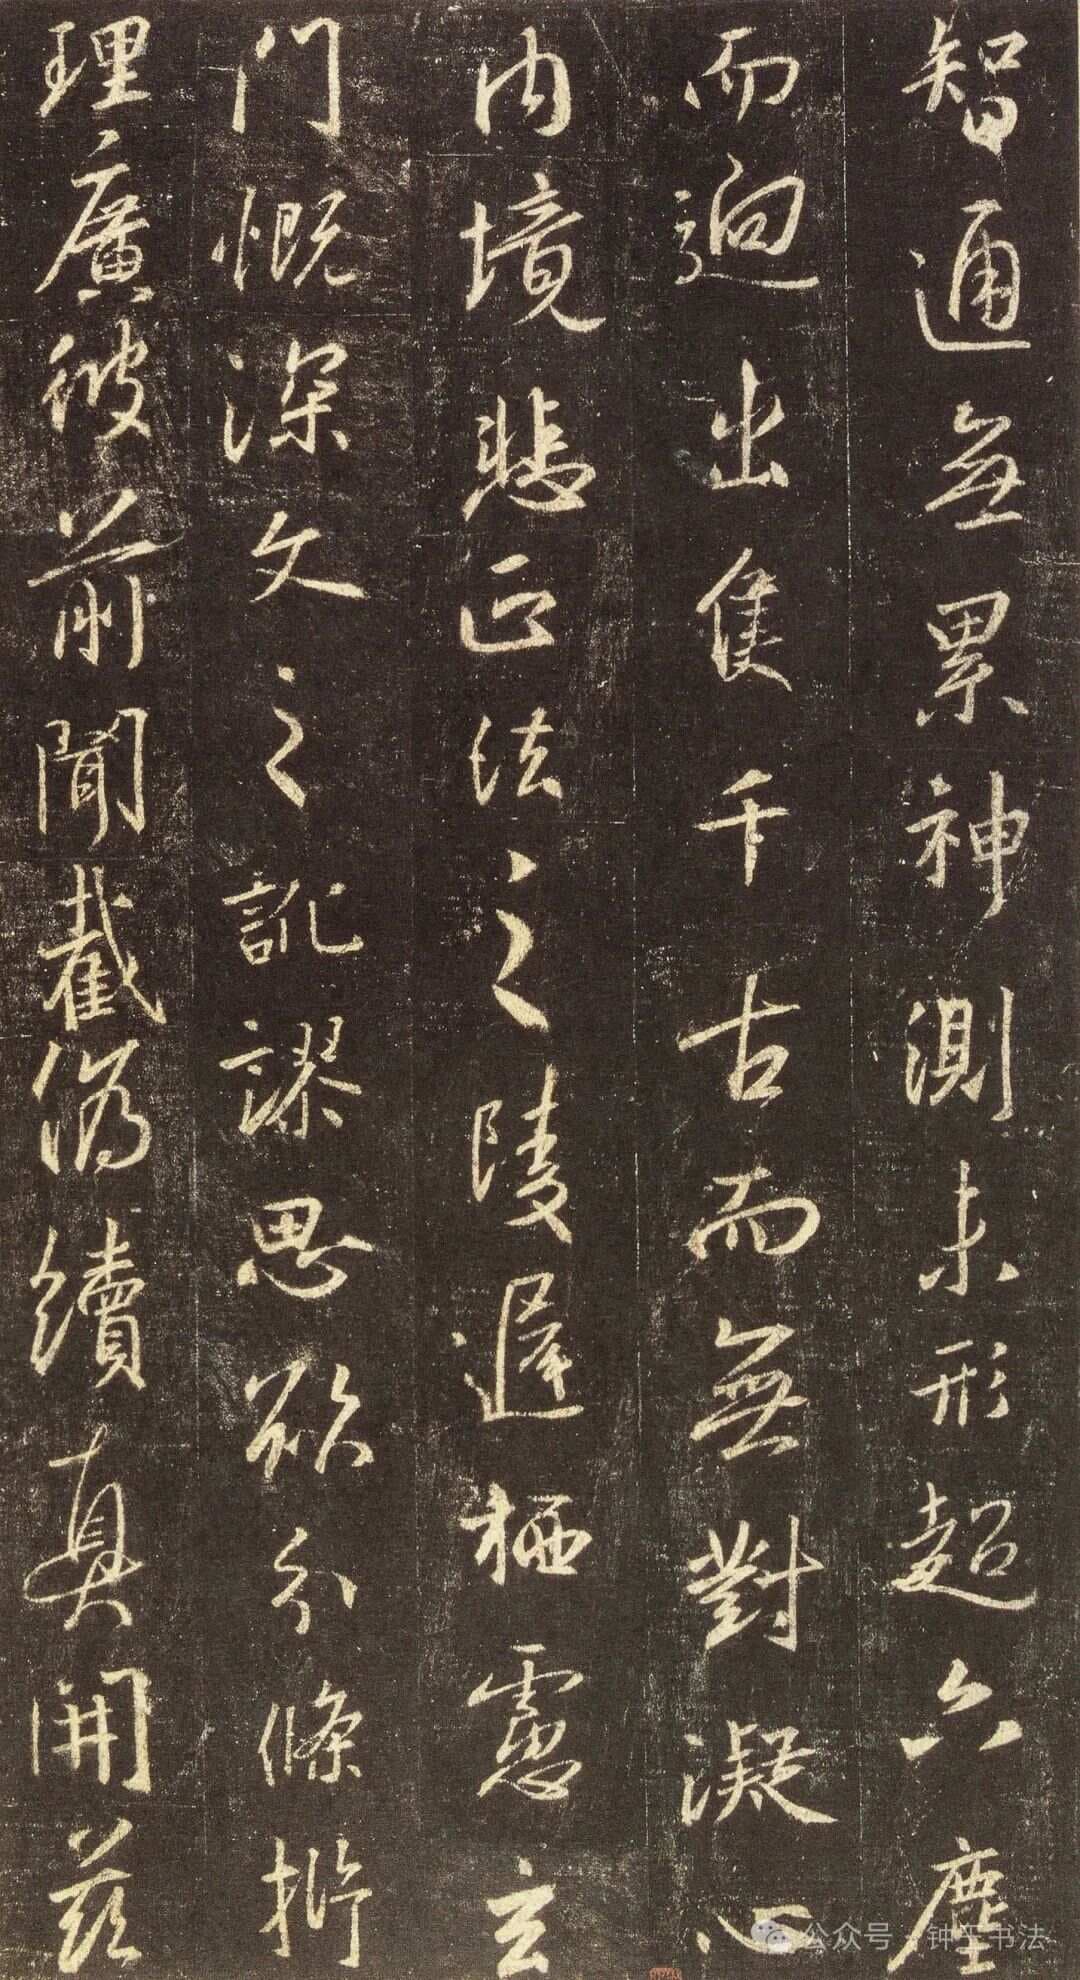 智通無累神測未形超六塵
而迥出隻千古而無對凝心
内境悲正法之陵遲栖慮玄
門慨深文之訛謬思欲分條析
理廣彼前聞截偽續真開茲
公众号·钟书法